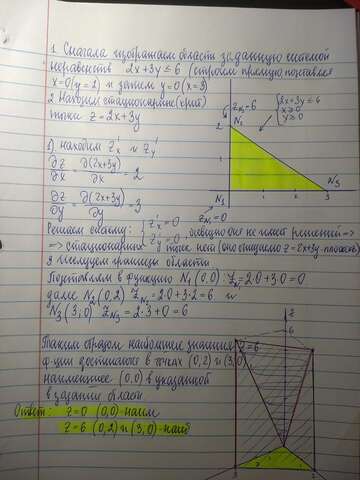 1. Сначала изображаем области заданную системой
неравенств 2x+3y≤6 (строим прямую, поставляя
x=0 (y=2) и затем y=0 (x=3)
2. Находим стационарные (крит)
точки z=2x+3y
1) находим z'x и z'y
∂z/∂x = ∂(2x+3y)/∂x = 2
∂z/∂y = ∂(2x+3y)/∂y = 3
z_{N2}=6
N2
{2x+3y≤6
x≥0
y≥0
2
1
1 2 3
N3
N1
z_{N1}=0
Решаем систему: {z'x=0
z'y=0, очевидно она не имеет решений ⇒
⇒ стационарных точек нет (оно очевидно z=2x+3y - плоскость)
Исследуем границы области
Подставляем в функцию N1(0;0): Z_{N1}=2·0+3·0=0
далее N2(0,2) Z_{N2}=2·0+3·2=6 и
N3(3;0) Z_{N3}=2·3+0=6
Таким образом наибольшее значение z=6
ф-ции достигает в точках (0,2) и (3,0)
наименьшее (0,0) в указанной
в задании области
Ответ: z=0 (0,0)-наим
z=6 (0,2) и (3,0)-наиб
z
6